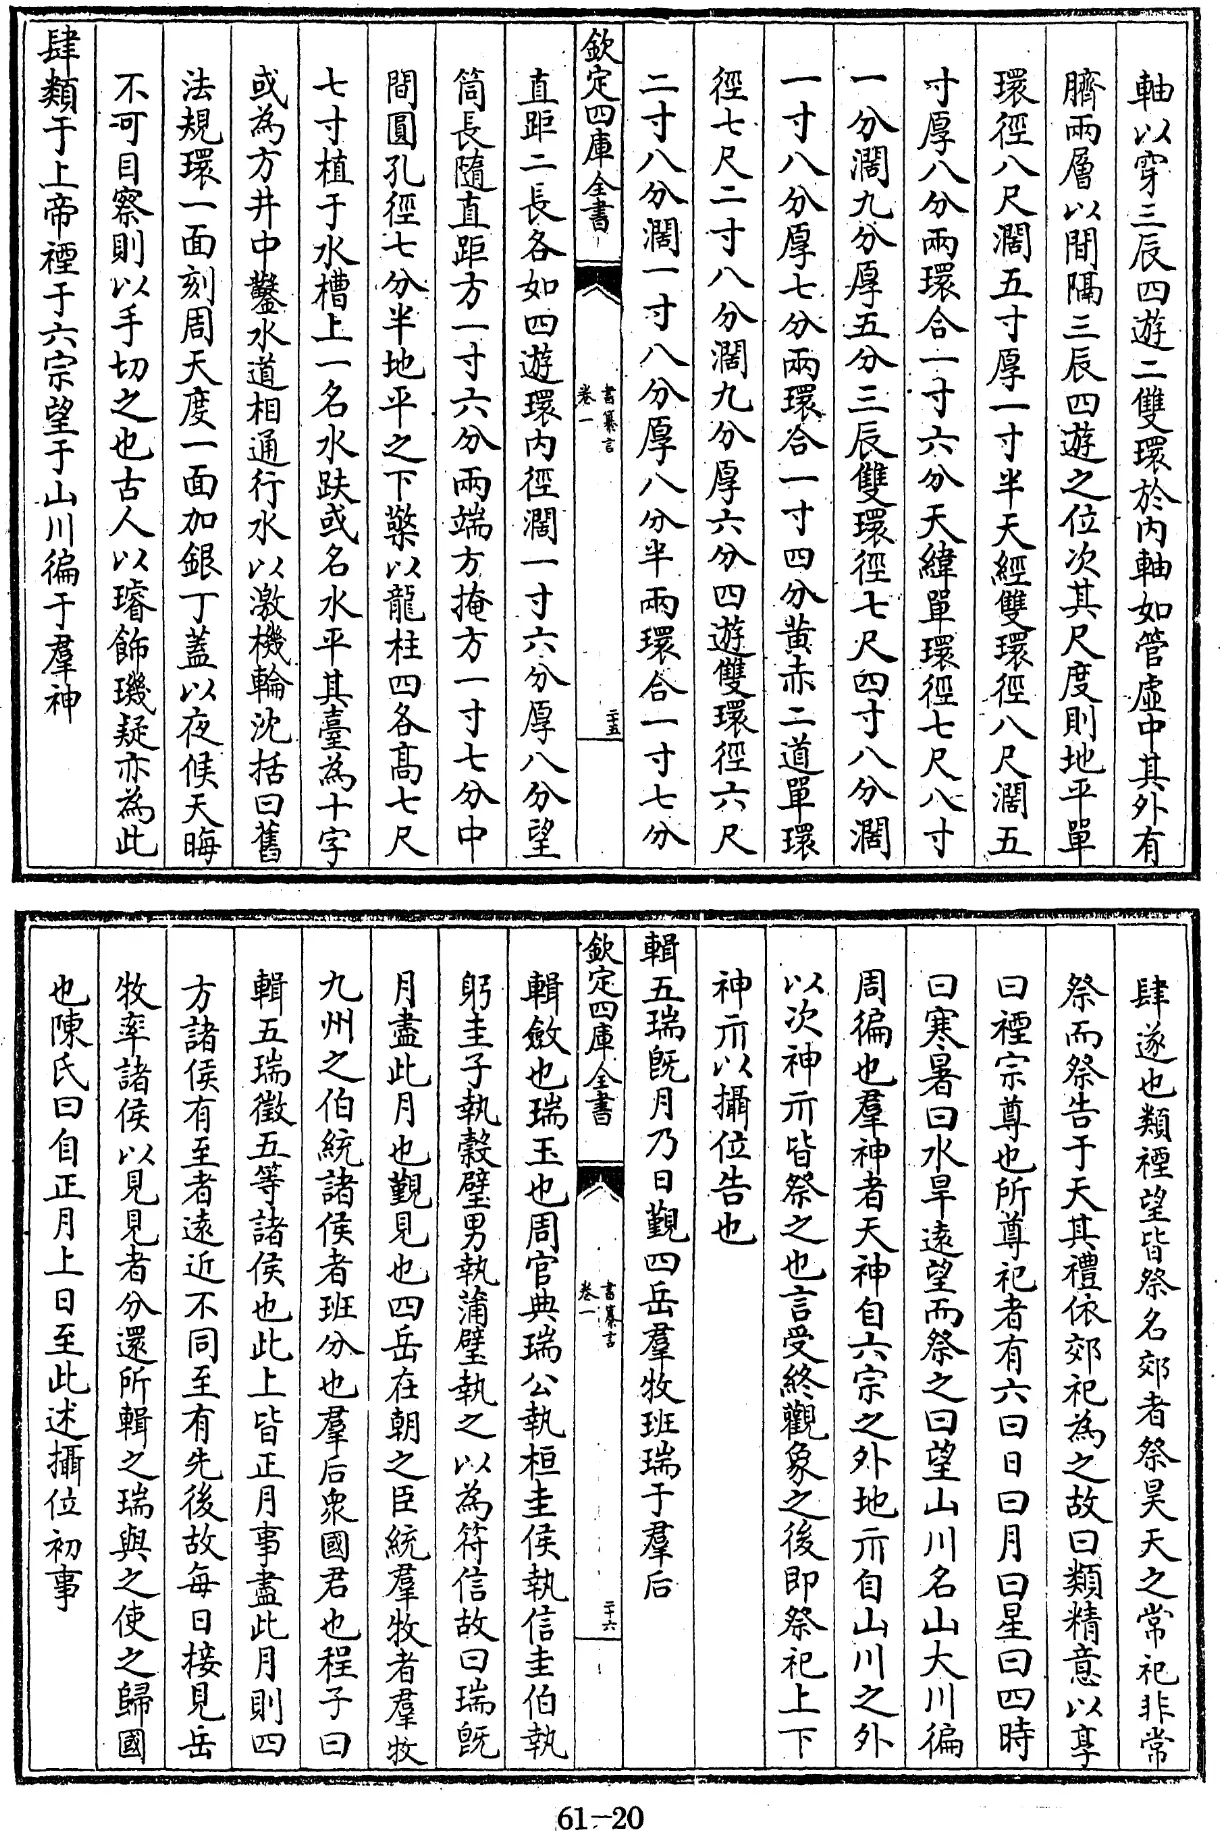 軸以穿三辰四遊二雙環於内軸如管虛中其外有
臍兩層以間隔三辰四遊之位次其尺度則地平單
環徑八尺濶五寸厚一寸半天經雙環徑八尺濶五
寸厚八分兩環合一寸六分天緯單環徑七尺八寸
一分濶九分厚五分三辰雙環徑七尺四寸八分濶
一寸八分厚七分兩環合一寸四分黄赤二道單環
徑七尺二寸八分濶九分厚六分四遊雙環徑六尺
二寸八分濶一寸八分厚八分半兩環合一寸七分
欽定四庫全書
書纂言
卷一
二十五
直距二長各如四遊環内徑濶一寸六分厚八分望
筒長隨直距方一寸六分兩端方掩方一寸七分中
間圓孔徑七分半地平之下檠以龍柱四各高七尺
七寸植于水槽上一名水趺或名水平其臺為十字
或為方井中鑿水道相通行水以激機輪沈括曰舊
法規環一面刻周天度一面加銀丁蓋以夜候天晦
不可目察則以手切之也古人以璿飾璣疑亦為此
肆類于上帝禋于六宗望于山川徧于羣神
肆遂也類禋望皆祭名郊者祭昊天之常祀非常
祭而祭告于天其禮依郊祀為之故曰類精意以享
曰禋宗尊也所尊祀者有六曰日曰月曰星曰四時
曰寒暑曰水旱遠望而祭之曰望山川名山大川徧
周徧也羣神者天神自六宗之外地示自山川之外
以次神示皆祭之也言受終觀象之後即祭祀上下
神示以攝位告也
輯五瑞旣月乃日覲四岳羣牧班瑞于羣后
欽定四庫全書
書纂言
卷一
二十六
輯斂也瑞玉也周官典瑞公執桓圭侯執信圭伯執
躬圭子執穀璧男執蒲璧執之以為符信故曰瑞旣
月盡此月也覲見也四岳在朝之臣統羣牧者羣牧
九州之伯統諸侯者班分也羣后衆國君也程子曰
輯五瑞徵五等諸侯也此上皆正月事盡此月則四
方諸侯有至者遠近不同至有先後故每日接見岳
牧率諸侯以見見者分還所輯之瑞與之使之歸國
也陳氏曰自正月上日至此述攝位初事
61-20